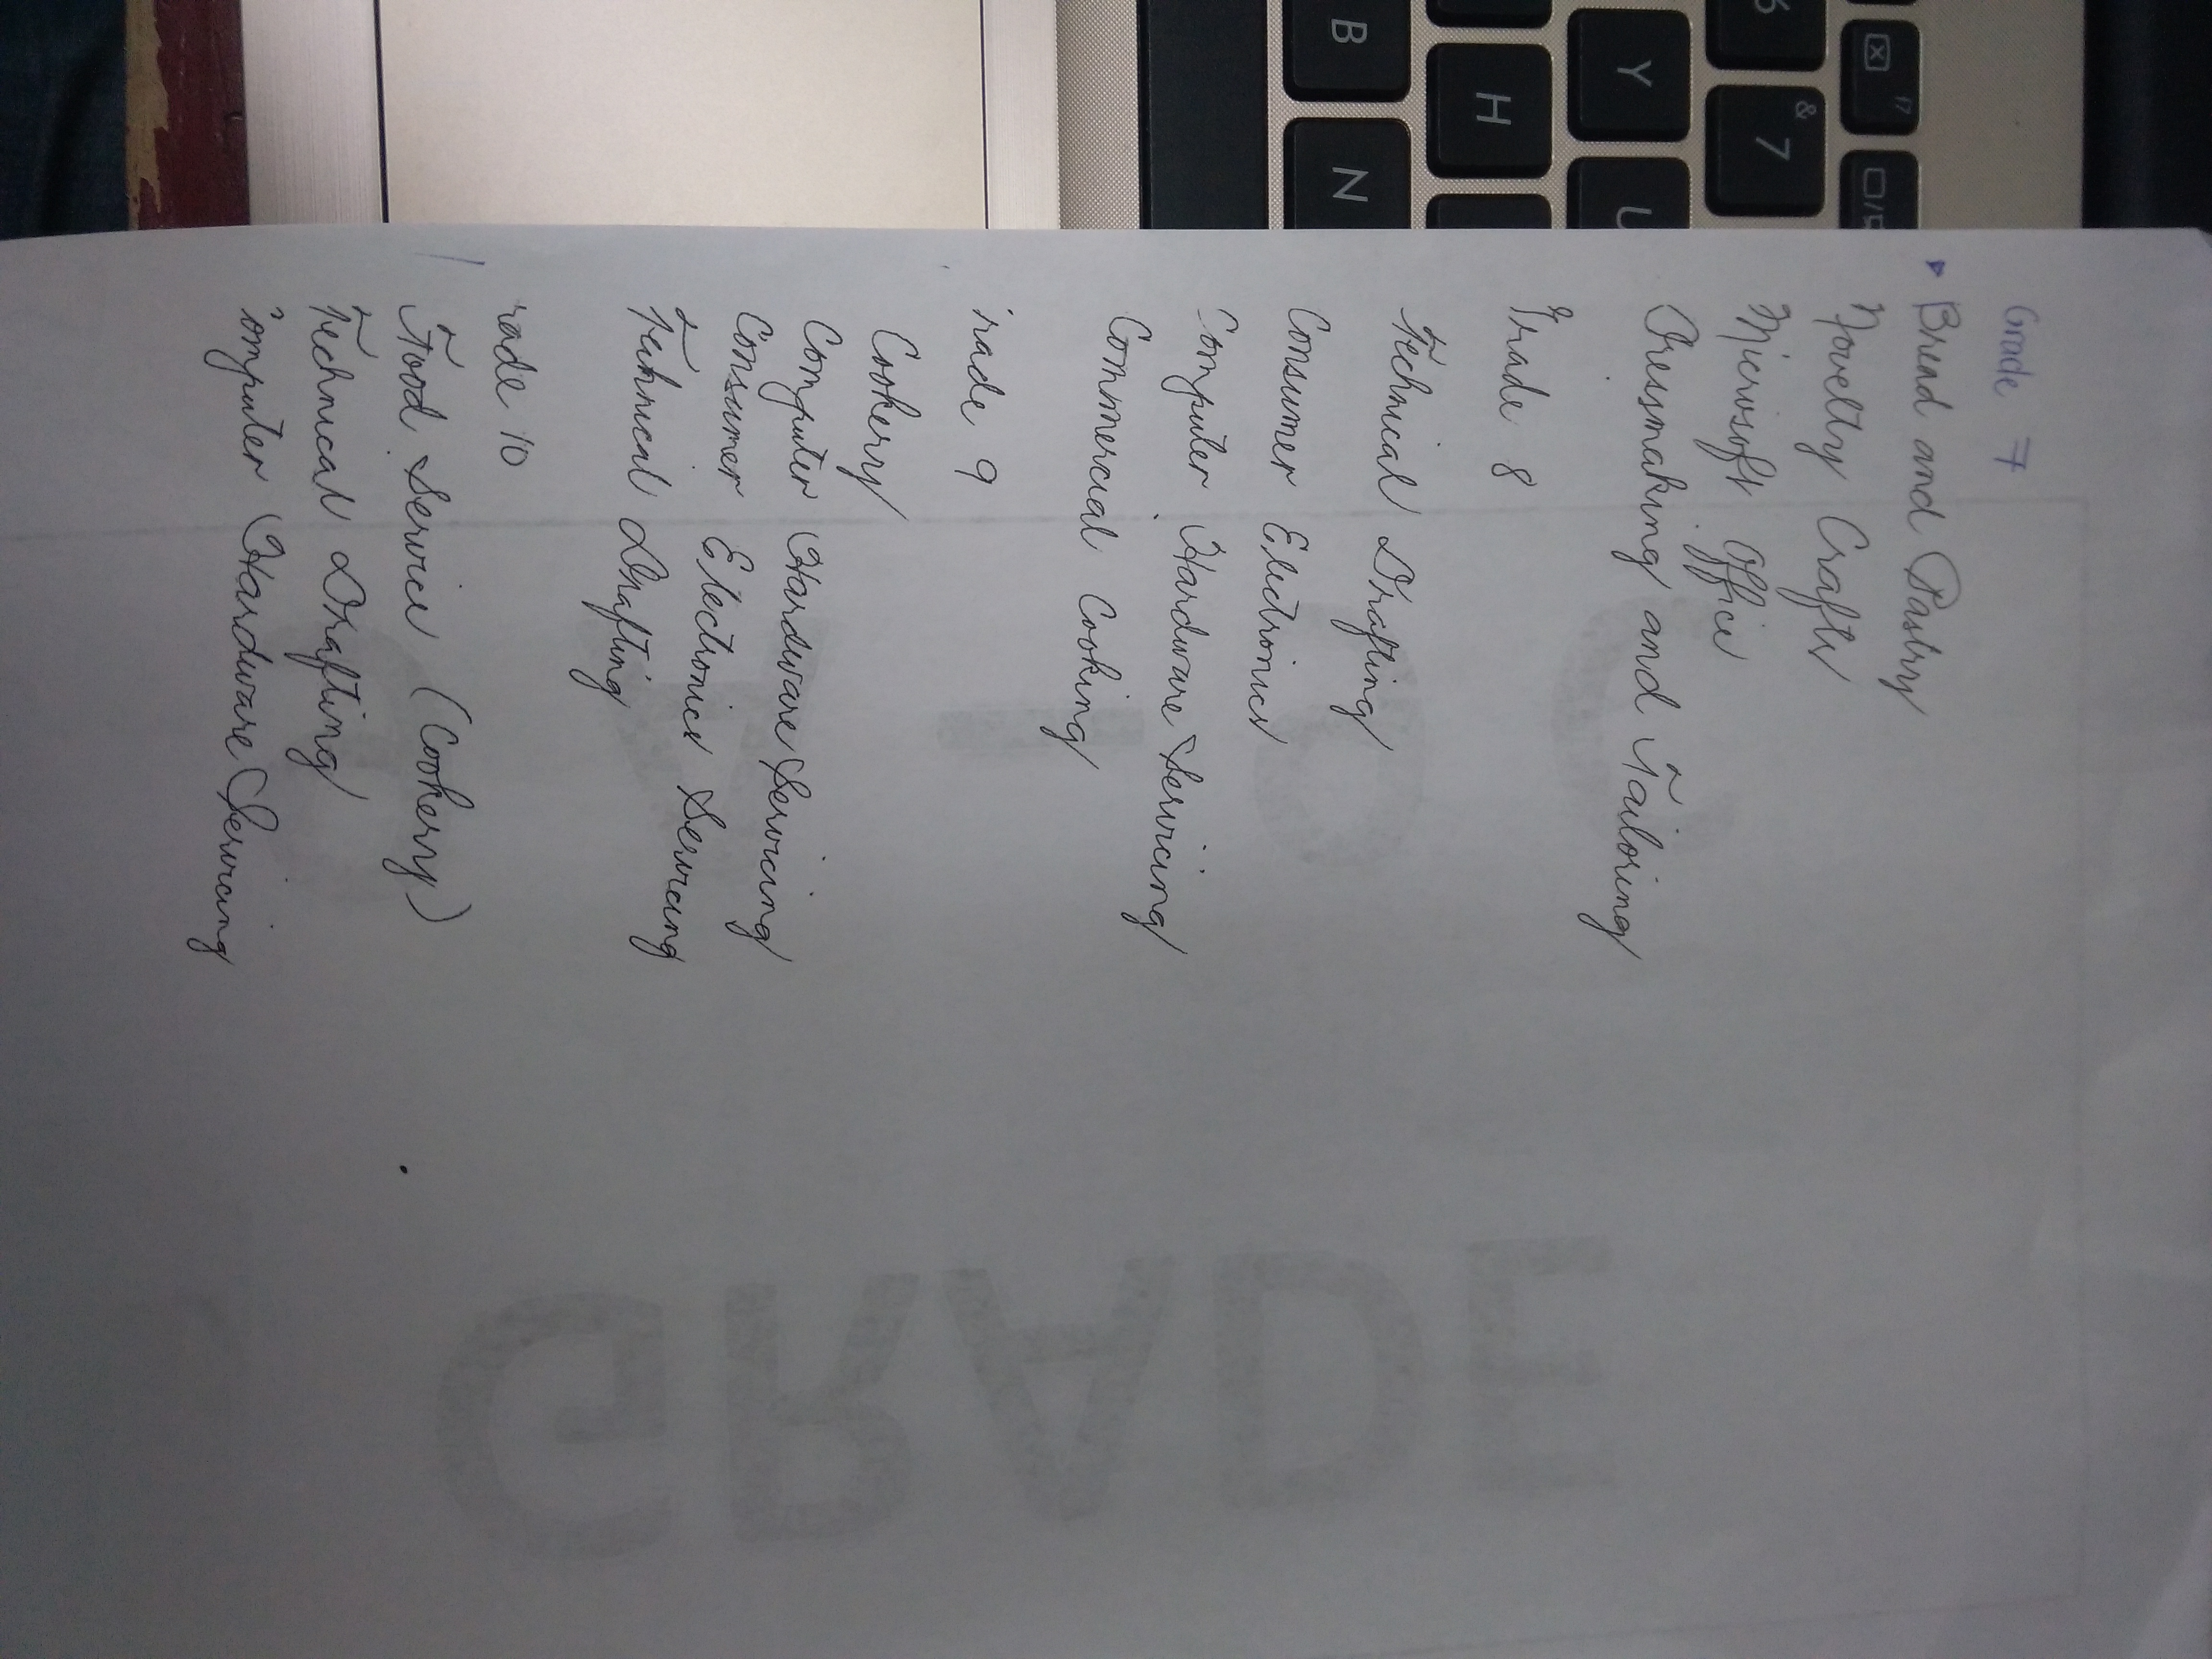 Grade 7
Bread and Pastry
Novelty Crafts
Microsoft Office
Dressmaking and Tailoring
Grade 8
Technical Drafting
Consumer Electronics
Computer Hardware Servicing
Commercial Cooking
rade 9
Cookery
Computer Hardware Servicing
Consumer Electronics Servicing
Technical Drafting
rade 10
Food Service (Cookery)
Technical Drafting
omputer Hardware Servicing
GRADE
f7
6
& 7
Y U
H
B N